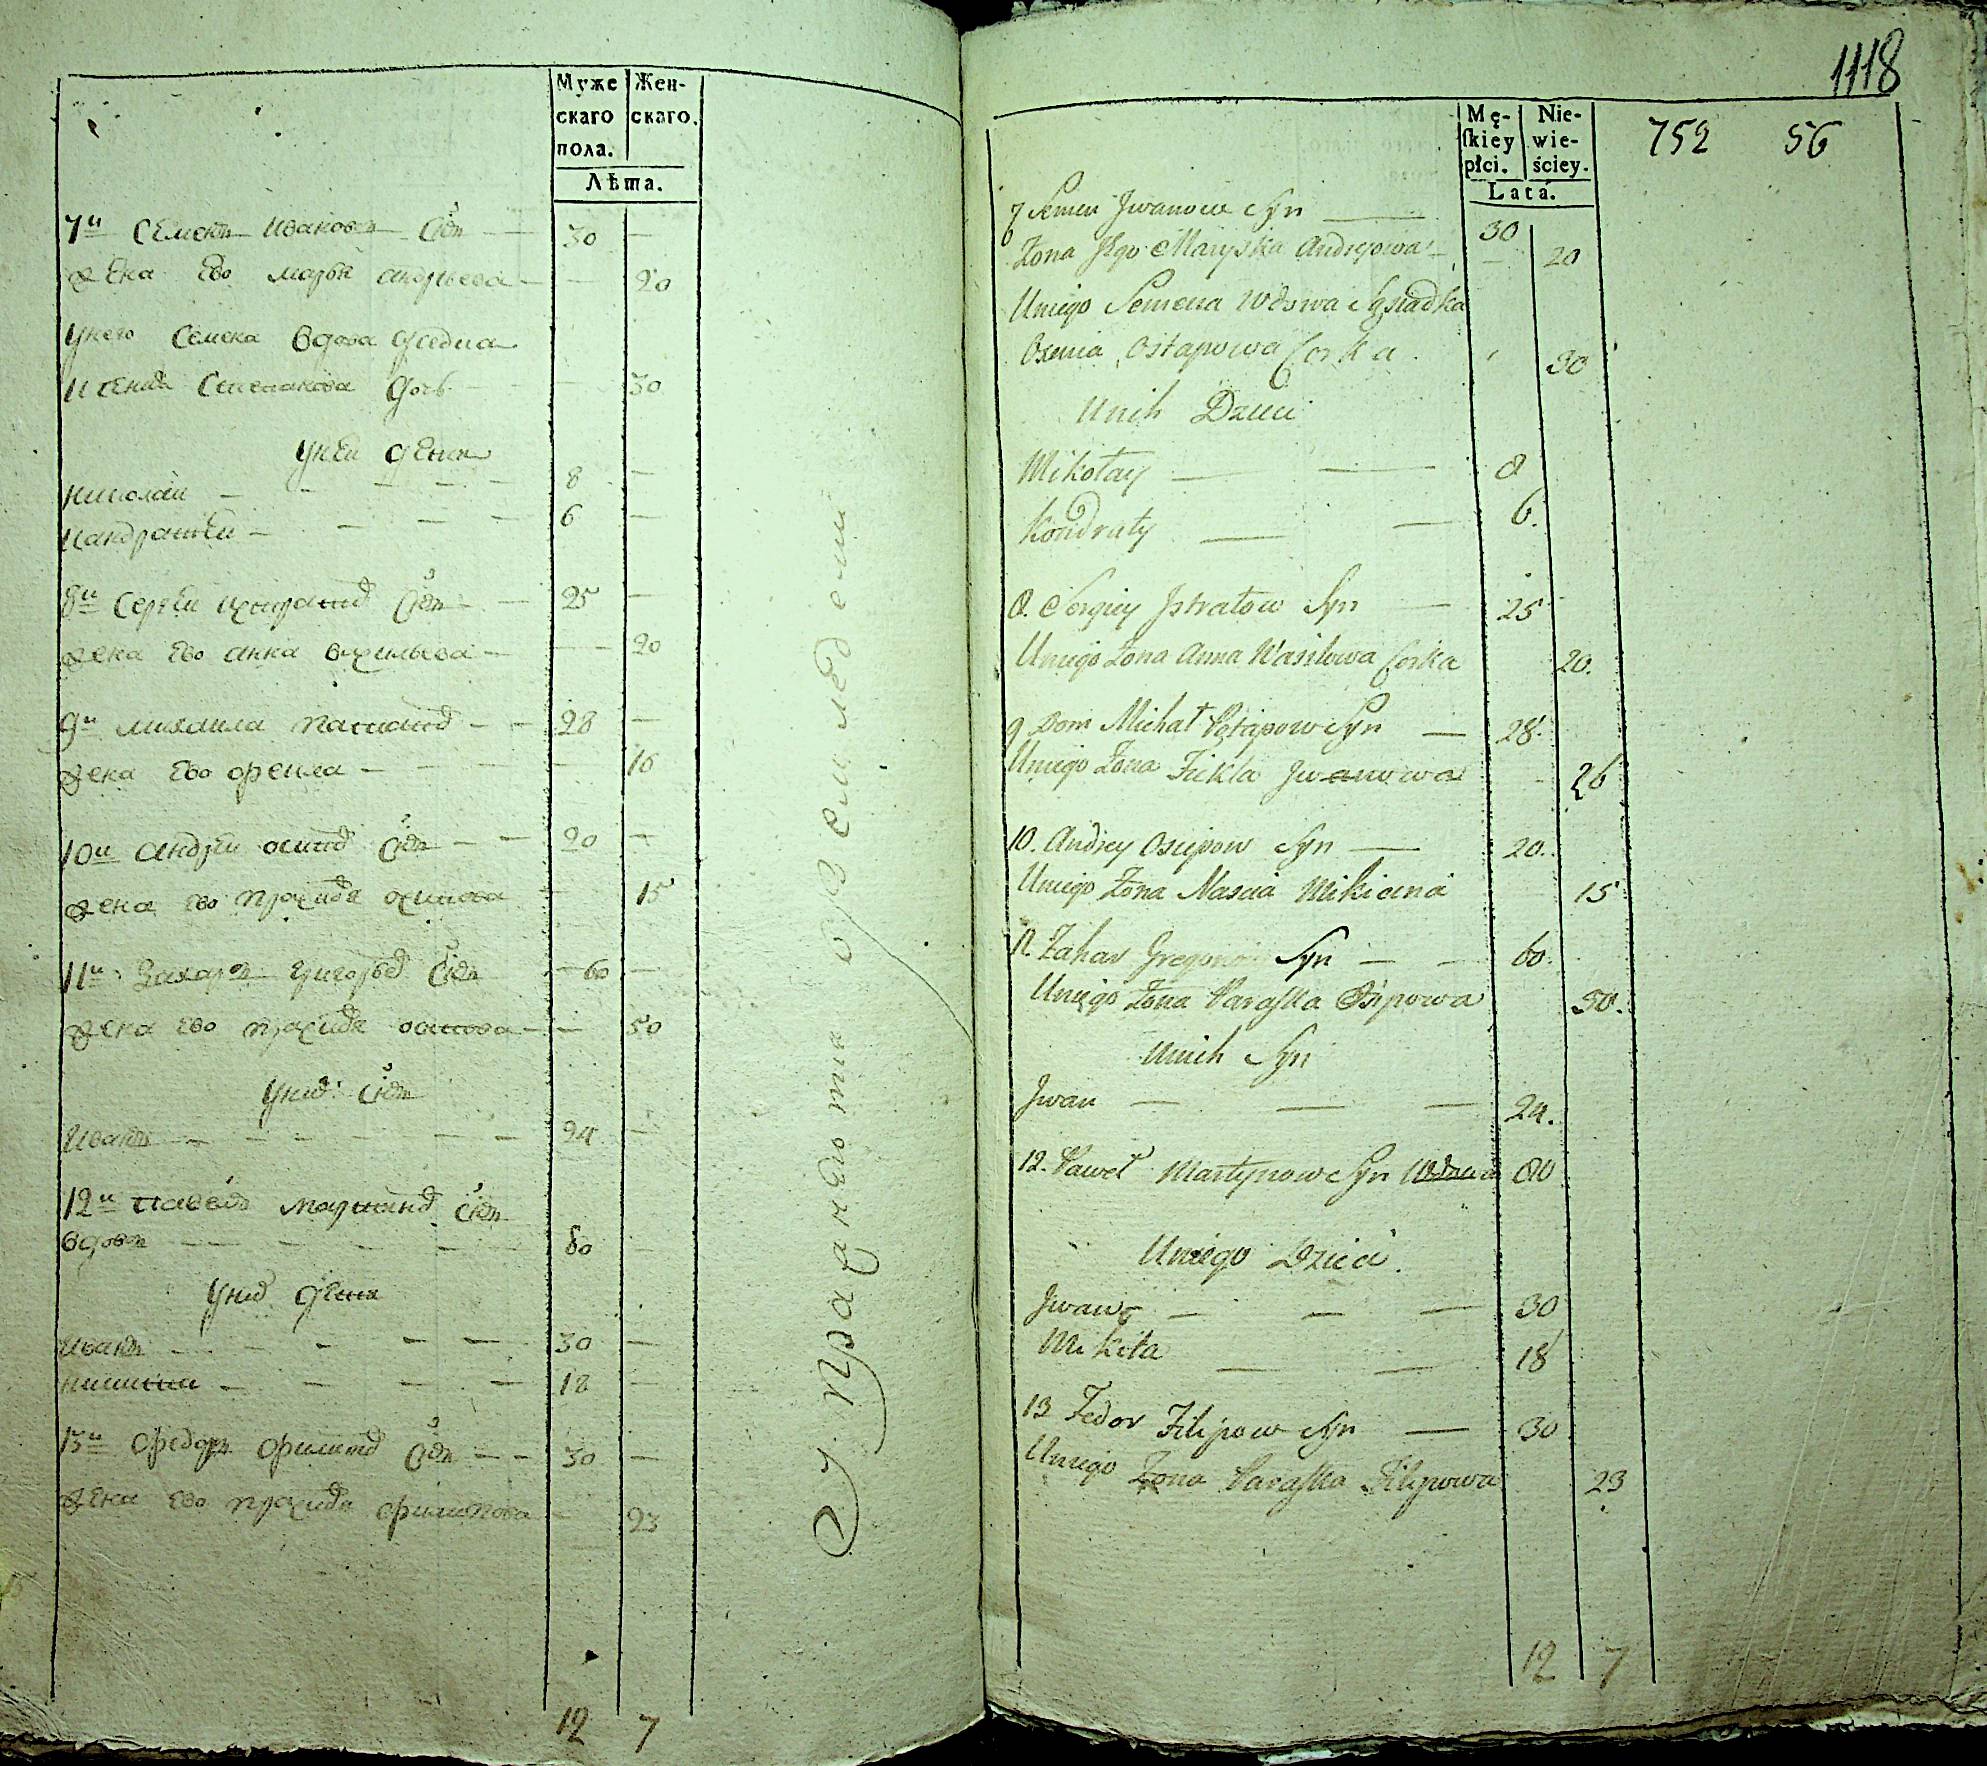 Муже
скаго
пола.
Жен-
скаго.
Лѣта.
7й Семенъ Ивановъ Сынъ 30
Жена Ево Маръя андрѣева 20
Унего Семена Вдова
дочь 30
Уней дѣти
Николай 8
Кандратей 6
8й Сергѣй Сынъ 25
Жена Ево анна 20
9й михаила 28
Жена Ево 16
10й андрей осипов Сынъ 20
Жена Ево 15
11й Захаръ григорьев Сынъ 60
Жена Ево осипова 50
Сынъ
Иванъ 24
12й павелъ мартинов Сынъ
вдовъ 80
дѣти
Иванъ 30
никита 18
13й Федоръ Филипов Сынъ 30
Жена Ево Филипова 23
12 7
1118
Mę-
skiey
płci.
Nie-
wie-
ściey.
Lata.
752 56
7 Semen Jwanow Syn 30
Zona Jego Maryska Andrejowa 20
Uniego Semena Wdowa Sąsiadka
Osenia Ostapowa Corka 30
Unih Dzieci
Mikołay 8
Kondraty 6.
8. Sergiey Jstratow Syn 25
Uniego Zona Anna Wasilowa Corka 20.
9 Dom Michał Potapow Syn 28.
Uniego Zona Fiekla Jwanowa 26
10. Andrey Osiepow Syn 20.
Uniego Zona Nascia Mikicina 15
11. Zahar Gregorow Syn 60.
Uniego Zona Paraska Osipowa 50.
Unich Syn
Jwan 24.
12. Paweł Martynow Syn Wdowa 80
Uniego Dzieci.
Jwan 30
Mikita 18
13 Fedor Filipow Syn 30
Uniego Zona Paraska Filipowa 23
12 7